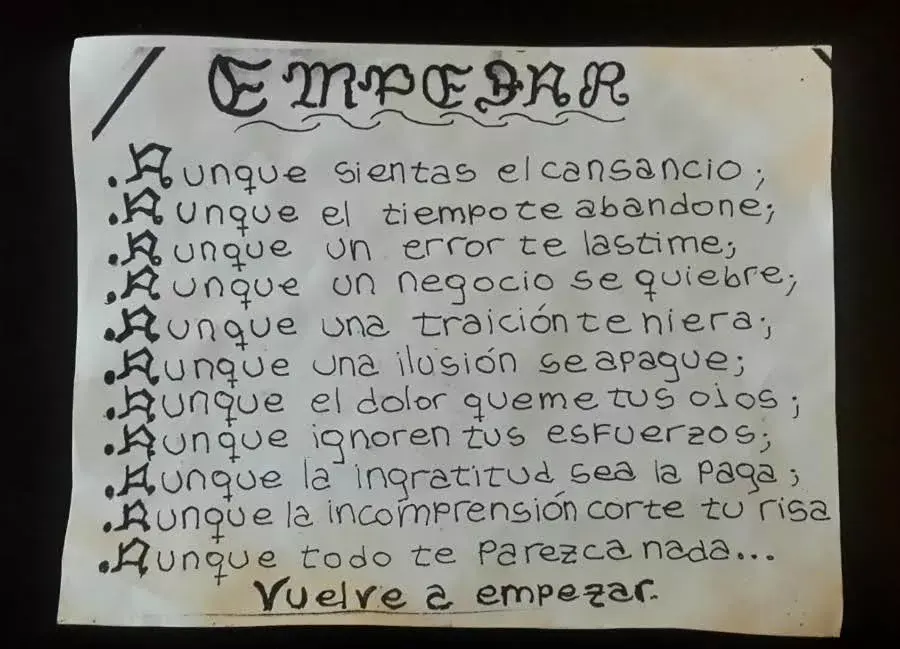 EMPEZAR
.Aunque sientas el cansancio;
.Aunque el tiempo te abandone;
.Aunque un error te lastime;
.Aunque un negocio se quiebre;
.Aunque una traición te niera;
.Aunque una ilusión se apague;
.Aunque el dolor queme tus ojos;
.Aunque ignoren tus esfuerzos;
.Aunque la ingratitud sea la paga;
.Aunque la incomprensión corte tu risa
.Aunque todo te parezca nada...
Vuelve a empezar.